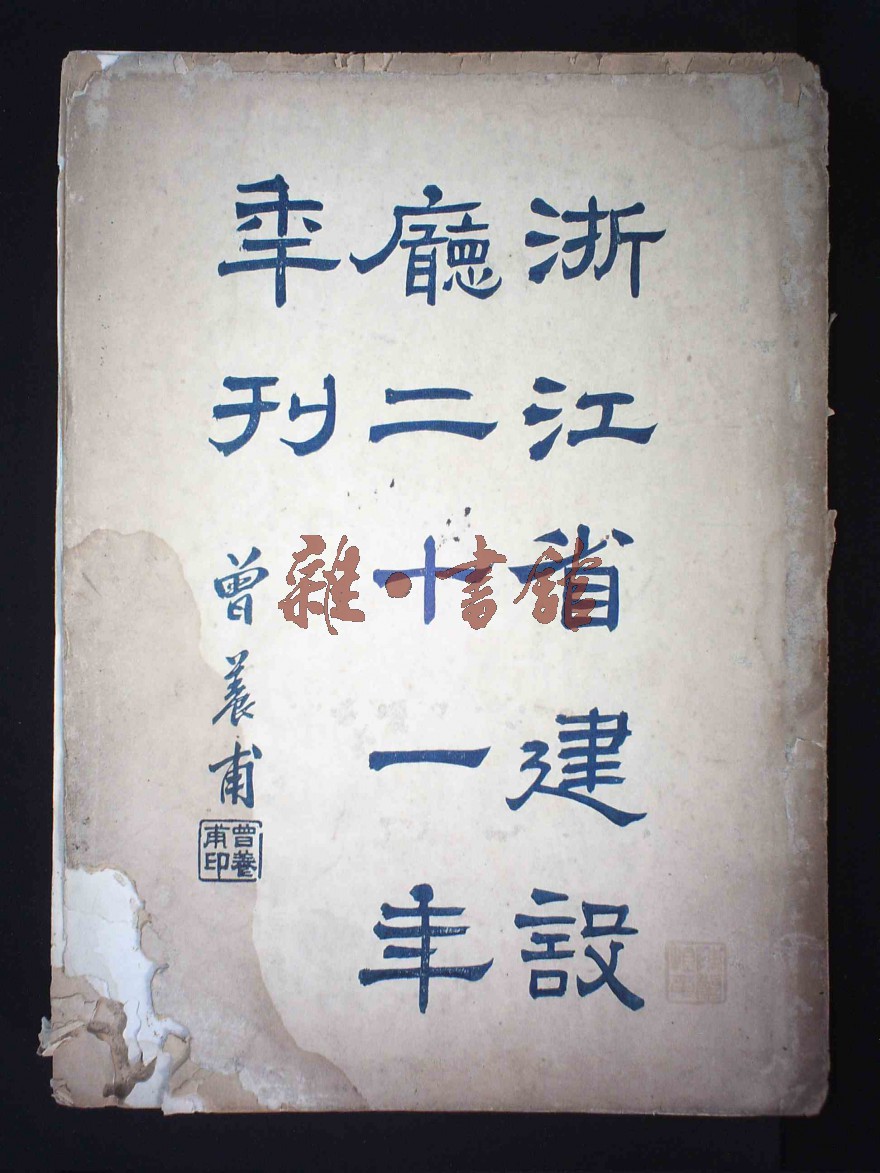 浙江省建設
廳二十一年
年刊
曾養甫
曾養甫印
雜·書館